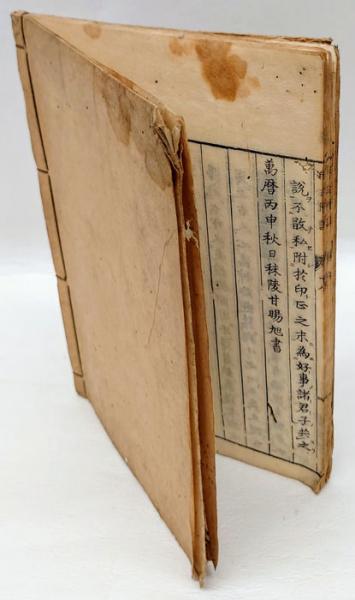 說不敢私附於印正之末為好事諸君子共之
萬曆丙申秋日秣陵甘暘旭書